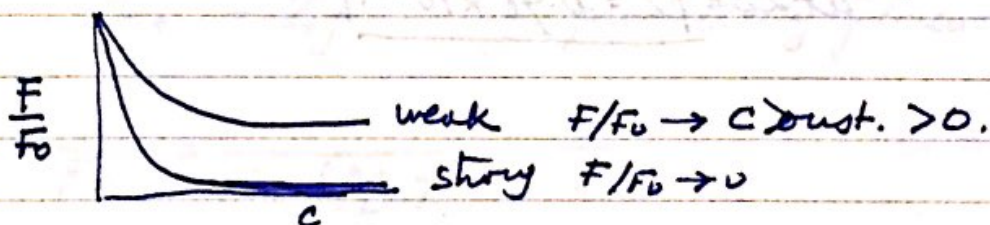 F/F₀
weak F/F₀ → Const. >0.
strong F/F₀ → 0
c